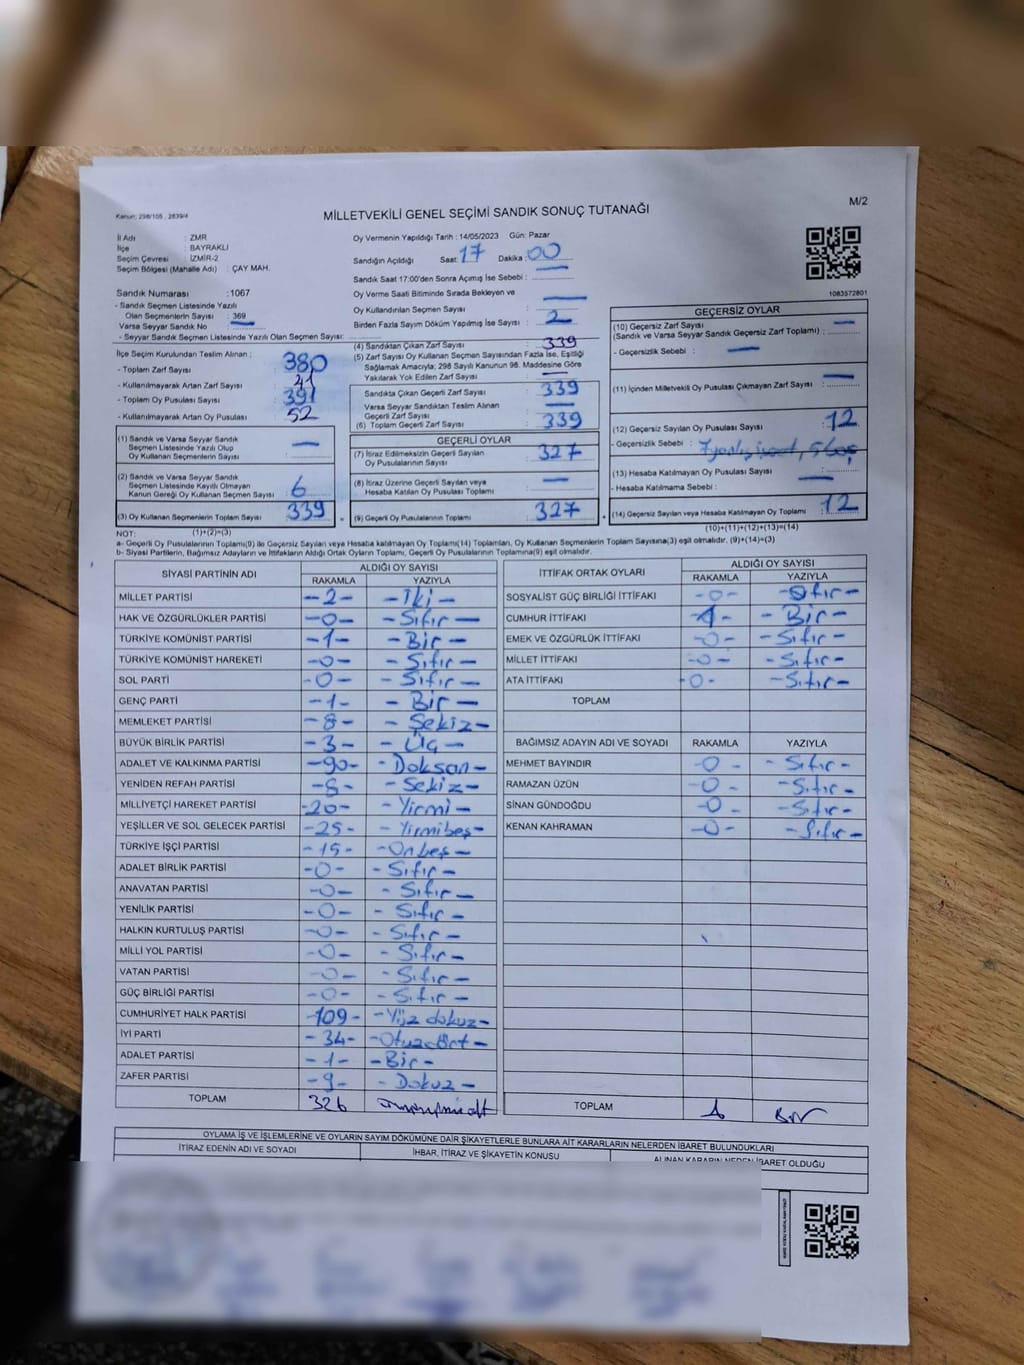 Kanun: 298/105 , 2839/4
MİLLETVEKİLİ GENEL SEÇİMİ SANDIK SONUÇ TUTANAĞI
M/2
İl Adı : ZMR
İlçe : BAYRAKLI
Seçim Çevresi : İZMİR-2
Seçim Bölgesi (Mahalle Adı) : ÇAY MAH.
Sandık Numarası : 1067
- Sandık Seçmen Listesinde Yazılı
Olan Seçmenlerin Sayısı : 369
Varsa Seyyar Sandık No —
- Seyyar Sandık Seçmen Listesinde Yazılı Olan Seçmen Sayısı:
İlçe Seçim Kurulundan Teslim Alınan :
- Toplam Zarf Sayısı 380
- Kullanılmayarak Artan Zarf Sayısı 41
- Toplam Oy Pusulası Sayısı 391
- Kullanılmayarak Artan Oy Pusulası 52
(1) Sandık ve Varsa Seyyar Sandık
Seçmen Listesinde Yazılı Olup
Oy Kullanan Seçmenlerin Sayısı —
(2) Sandık ve Varsa Seyyar Sandık
Seçmen Listesinde Kayıtlı Olmayan
Kanun Gereği Oy Kullanan Seçmen Sayısı 6
(3) Oy Kullanan Seçmenlerin Toplam Sayısı 339
Oy Vermenin Yapıldığı Tarih : 14/05/2023 Gün: Pazar
Sandığın Açıldığı Saat: 17 Dakika: 00
Sandık Saat 17:00'den Sonra Açılmış İse Sebebi : —
Oy Verme Saati Bitiminde Sırada Bekleyen ve
Oy Kullandırılan Seçmen Sayısı : —
Birden Fazla Sayım Döküm Yapılmış İse Sayısı : 2
(4) Sandıktan Çıkan Zarf Sayısı 339
(5) Zarf Sayısı Oy Kullanan Seçmen Sayısından Fazla İse, Eşitliği
Sağlamak Amacıyla; 298 Sayılı Kanunun 98. Maddesine Göre
Yakılarak Yok Edilen Zarf Sayısı —
Sandıkta Çıkan Geçerli Zarf Sayısı 339
Varsa Seyyar Sandıktan Teslim Alınan
Geçerli Zarf Sayısı —
(6) Toplam Geçerli Zarf Sayısı 339
GEÇERLİ OYLAR
(7) İtiraz Edilmeksizin Geçerli Sayılan
Oy Pusulalarının Sayısı 327
(8) İtiraz Üzerine Geçerli Sayılan veya
Hesaba Katılan Oy Pusulası Toplamı —
(9) Geçerli Oy Pusulalarının Toplamı 327
1083572801
GEÇERSİZ OYLAR
(10) Geçersiz Zarf Sayısı
(Sandık ve Varsa Seyyar Sandık Geçersiz Zarf Toplamı) : —
- Geçersizlik Sebebi : —
(11) İçinden Milletvekili Oy Pusulası Çıkmayan Zarf Sayısı : —
(12) Geçersiz Sayılan Oy Pusulası Sayısı 12
- Geçersizlik Sebebi : 7 yanlış , 5 boş
(13) Hesaba Katılmayan Oy Pusulası Sayısı —
- Hesaba Katılmama Sebebi :
(14) Geçersiz Sayılan veya Hesaba Katılmayan Oy Toplamı 12
NOT: (1)+(2)=(3)
(10)+(11)+(12)+(13)=(14)
a- Geçerli Oy Pusulalarının Toplamı(9) ile Geçersiz Sayılan veya Hesaba katılmayan Oy Pusulası(14) Toplamları, Oy Kullanan Seçmenlerin Toplam Sayısına(3) eşit olmalıdır. (9)+(14)=(3)
b- Siyasi Partilerin, Bağımsız Adayların ve İttifakların Aldığı Ortak Oyların Toplamı, Geçerli Oy Pusulalarının Toplamına(9) eşit olmalıdır.
SİYASİ PARTİNİN ADI ALDIĞI OY SAYISI
RAKAMLA YAZIYLA
MİLLET PARTİSİ -2- -İki-
HAK VE ÖZGÜRLÜKLER PARTİSİ -0- -Sıfır-
TÜRKİYE KOMÜNİST PARTİSİ -1- -Bir-
TÜRKİYE KOMÜNİST HAREKETİ -0- -Sıfır-
SOL PARTİ -0- -Sıfır-
GENÇ PARTİ -1- -Bir-
MEMLEKET PARTİSİ -8- -Sekiz-
BÜYÜK BİRLİK PARTİSİ -3- -Üç-
ADALET VE KALKINMA PARTİSİ -90- -Doksan-
YENİDEN REFAH PARTİSİ -8- -Sekiz-
MİLLİYETÇİ HAREKET PARTİSİ -20- -Yirmi-
YEŞİLLER VE SOL GELECEK PARTİSİ -25- -Yirmibeş-
TÜRKİYE İŞÇİ PARTİSİ -15- -Onbeş-
ADALET BİRLİK PARTİSİ -0- -Sıfır-
ANAVATAN PARTİSİ -0- -Sıfır-
YENİLİK PARTİSİ -0- -Sıfır-
HALKIN KURTULUŞ PARTİSİ -0- -Sıfır-
MİLLİ YOL PARTİSİ -0- -Sıfır-
VATAN PARTİSİ -0- -Sıfır-
GÜÇ BİRLİĞİ PARTİSİ -0- -Sıfır-
CUMHURİYET HALK PARTİSİ -109- -Yüz dokuz-
İYİ PARTİ -34- -Otuzdört-
ADALET PARTİSİ -1- -Bir-
ZAFER PARTİSİ -9- -Dokuz-
TOPLAM 326
İTTİFAK ORTAK OYLARI ALDIĞI OY SAYISI
RAKAMLA YAZIYLA
SOSYALİST GÜÇ BİRLİĞİ İTTİFAKI -0- -Sıfır-
CUMHUR İTTİFAKI -1- -Bir-
EMEK VE ÖZGÜRLÜK İTTİFAKI -0- -Sıfır-
MİLLET İTTİFAKI -0- -Sıfır-
ATA İTTİFAKI -0- -Sıfır-
TOPLAM
BAĞIMSIZ ADAYIN ADI VE SOYADI RAKAMLA YAZIYLA
MEHMET BAYINDIR -0- -Sıfır-
RAMAZAN ÜZÜN -0- -Sıfır-
SİNAN GÜNDOĞDU -0- -Sıfır-
KENAN KAHRAMAN -0- -Sıfır-
TOPLAM 1 Bir
OYLAMA İŞ VE İŞLEMLERİNE VE OYLARIN SAYIM DÖKÜMÜNE DAİR ŞİKAYETLERLE BUNLARA AİT KARARLARIN NELERDEN İBARET BULUNDUKLARI
İTİRAZ EDENİN ADI VE SOYADI İHBAR, İTİRAZ VE ŞİKAYETİN KONUSU ALINAN KARARIN NEDEN İBARET OLDUĞU